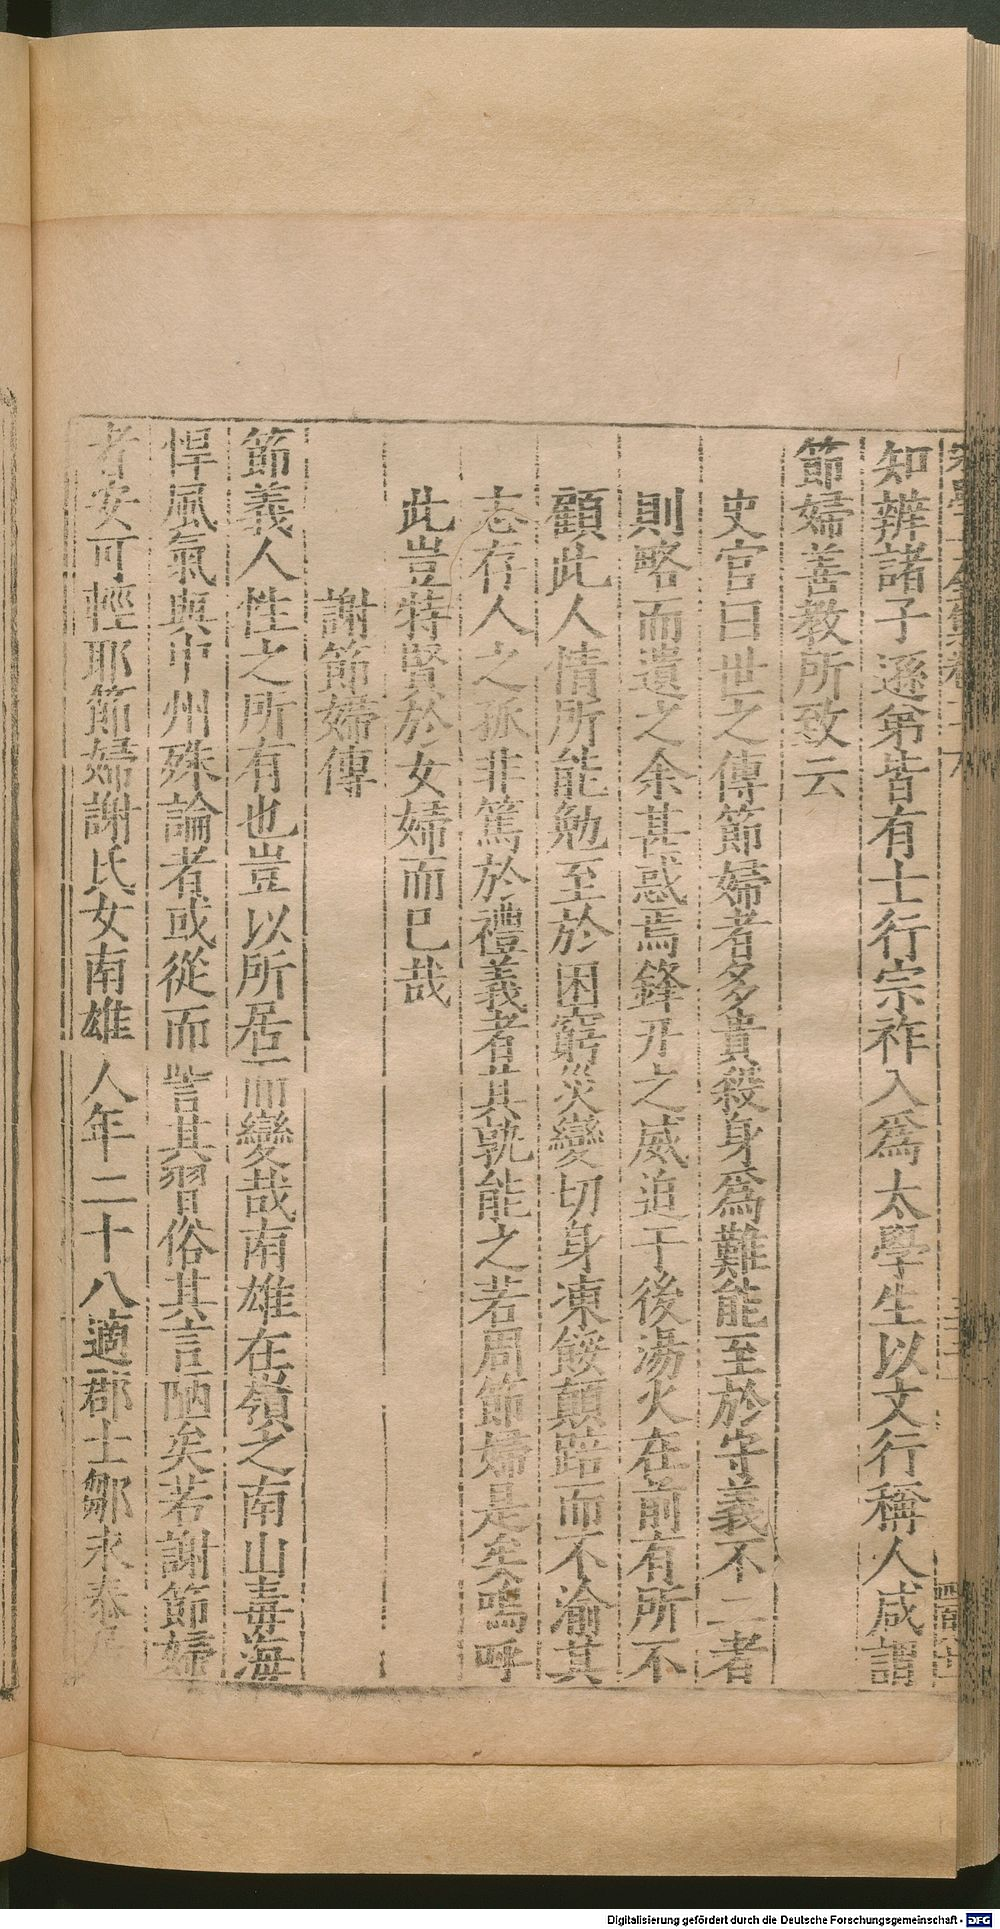 知辨諸子遜第皆有士行宗祚入爲太學生以文行稱人咸謂
節婦善教所致云
史官曰世之傳節婦者多貴殺身爲難能至於守義不二者
則略而遺之余甚惑焉鋒刃之威迫于後湯火在前有所不
顧此人情所能勉至於困窮災變切身凍餒顛踣而不渝其
志存人之孤非篤於禮義者其孰能之若周節婦是矣嗚呼
此豈特賢於女婦而已哉
謝節婦傳
節義人性之所有也豈以所居而變哉南雄在嶺之南山毒海
悍風氣與中州殊論者或從而訾其習俗其言陋矣若謝節婦
者安可輕耶節婦謝氏女南雄人年二十八適郡士鄒永泰
Digitalisierung gefördert durch die Deutsche Forschungsgemeinschaft - DFG